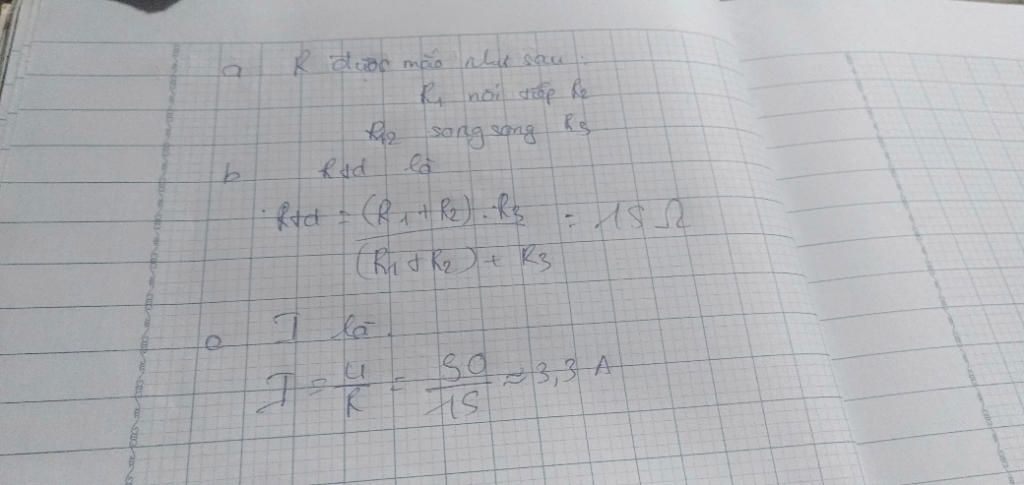 a R được mắc như sau:
R1 nối tiếp R2
R12 song song R3
b Rtd là
Rtd = (R1 + R2) . R3 / (R1 + R2) + R3 = 15 Ω
c I là
I = U / R = 50 / 15 ≈ 3,3 A